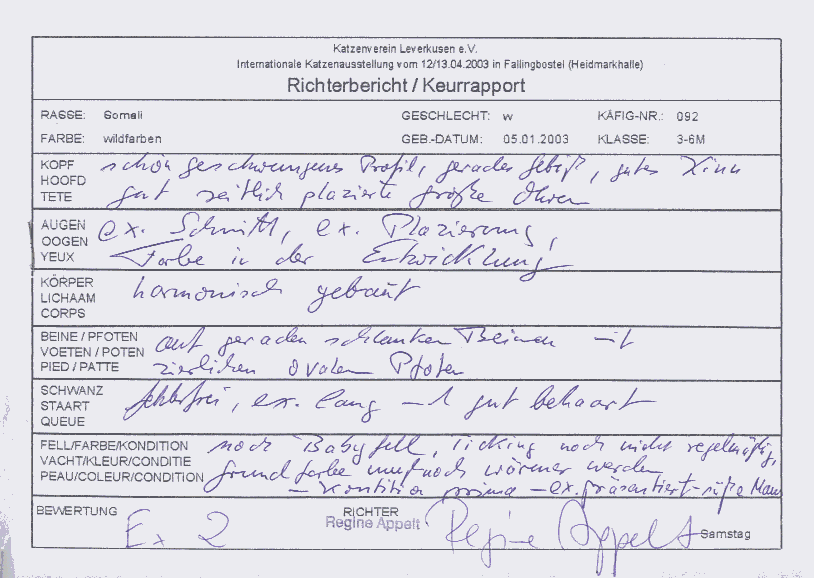 Katzenverein Leverkusen e.V.
Internationale Katzenausstellung vom 12/13.04.2003 in Fallingbostel (Heidmarkhalle)
Richterbericht / Keurrapport
RASSE: Somali GESCHLECHT: w KÄFIG-NR.: 092
FARBE: wildfarben GEB.-DATUM: 05.01.2003 KLASSE: 3-6M
KOPF
HOOFD
TETE
schön geschwungenes Profil, gerades Gebiß, gutes Kinn
gut seitlich plazierte große Ohren
AUGEN
OOGEN
YEUX
ex. Schnitt, ex. Plazierung,
Farbe in der Entwicklung
KÖRPER
LICHAAM
CORPS
harmonisch gebaut
BEINE / PFOTEN
VOETEN / POTEN
PIED / PATTE
auf geraden schlanken Beinen mit
zierlichen ovalen Pfoten
SCHWANZ
STAART
QUEUE
fehlerfrei, ex. lang und gut behaart
FELL/FARBE/KONDITION
VACHT/KLEUR/CONDITIE
PEAU/COLEUR/CONDITION
noch Babyfell, Ticking noch nicht regelmäßig,
Grundfarbe muß noch wärmer werden
– Kontition prima – ex. präsentiert – süße Maus
BEWERTUNG Ex 2
RICHTER
Regine Appelt
Regine Appelt
Samstag